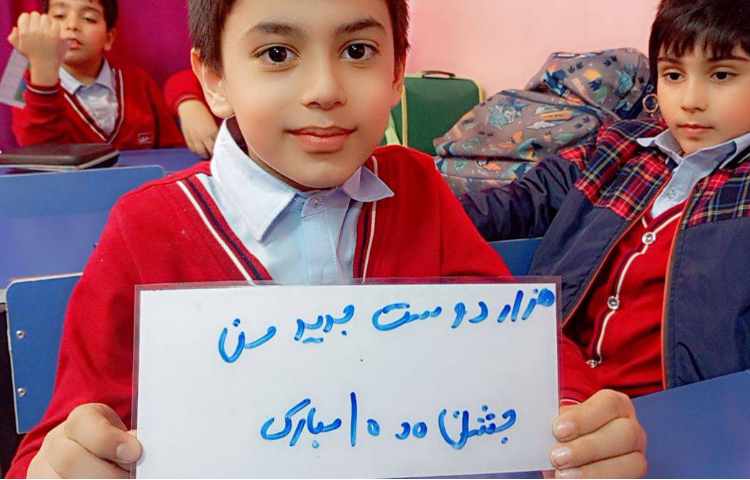 هزار دوست جدید من
جشن 1000 مبارک